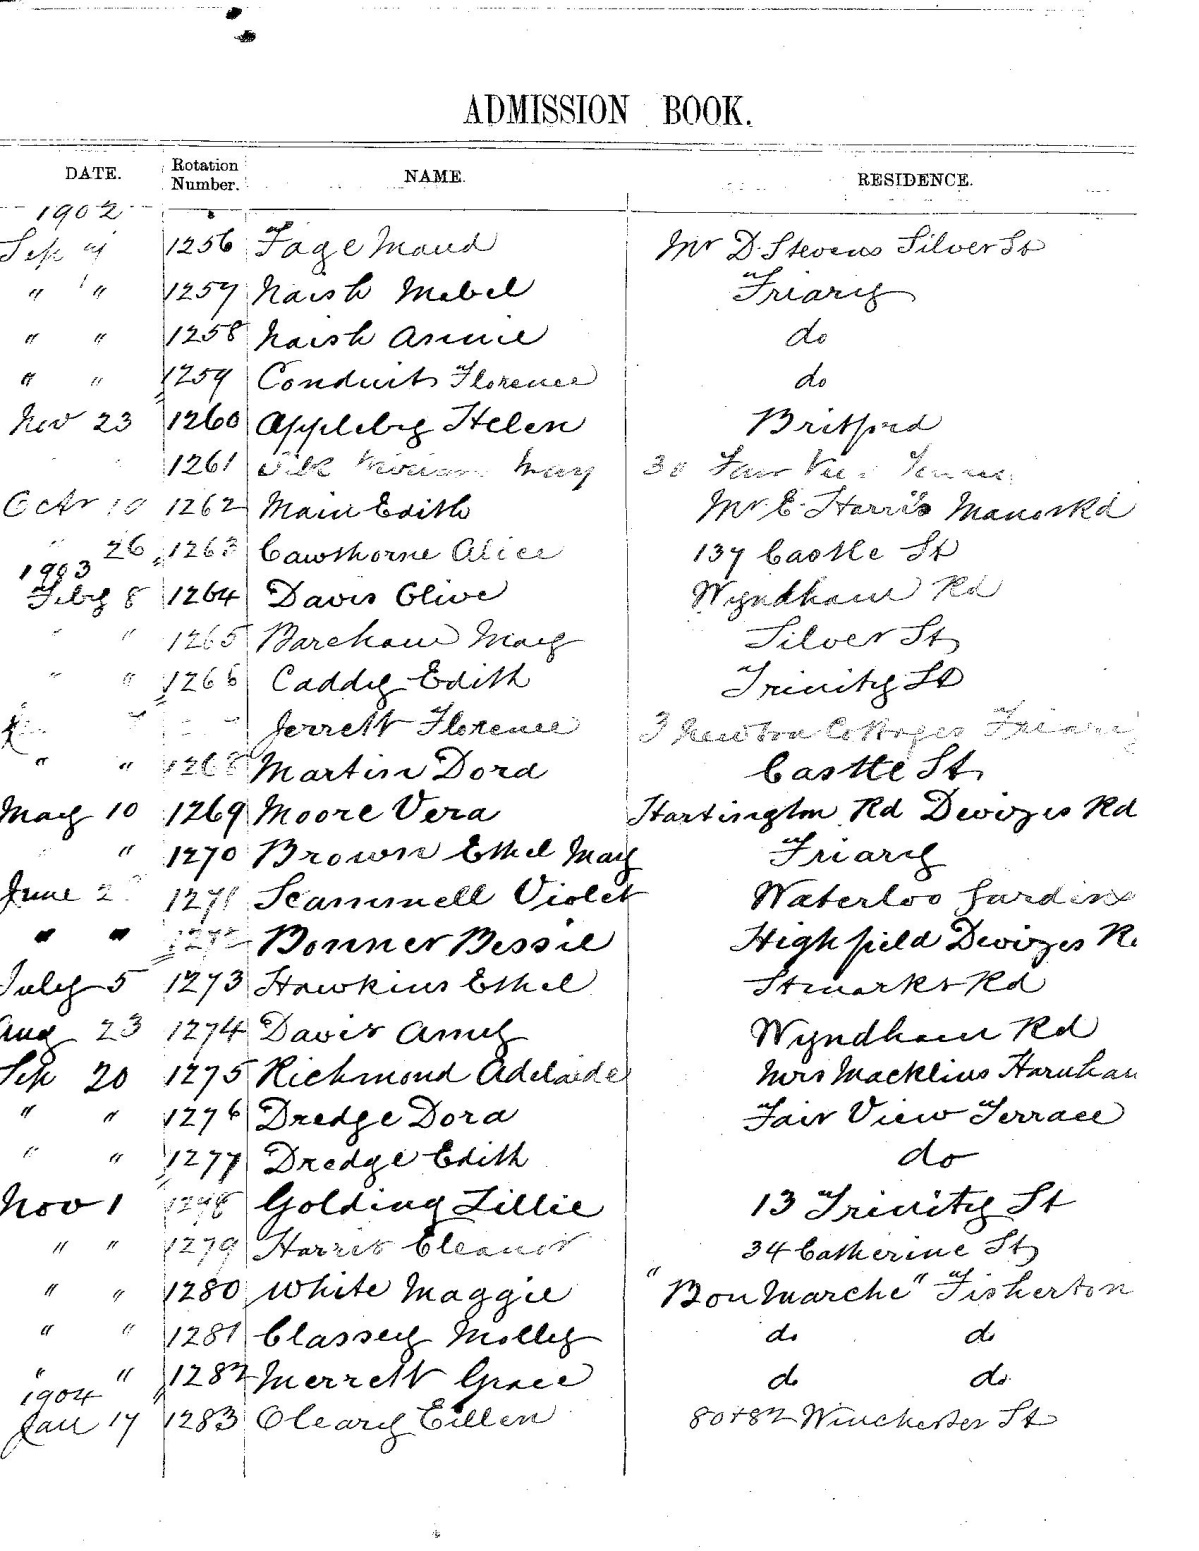 ADMISSION BOOK.
DATE. Rotation Number. NAME. RESIDENCE.
1902
Sep 1256 Page Maud Mr D. Stevens Silver St
" " 1257 Naish Mabel Friary
" " 1258 Naish Annie do
" " 1259 Conduit Florence do
Nov 23 1260 Appleby Helen Britford
1261 May 30 Fair View
Octr 19 1262 Main Edith Mr E. Harris Manor Rd
" 26 1263 Cawthorne Alice 137 Castle St
1903
Feby 8 1264 Davis Olive Wyndham Rd
" " 1265 Bareham May Silver St
" " 1266 Caddy Edith Trinity St
Jerrett Florence 3 Newton Cottages Friary
" " 1268 Martin Dora Castle St
May 10 1269 Moore Vera Hartington Rd Devizes Rd
" 1270 Brown Ethel May Friary
June 2 1271 Scammell Violet Waterloo Gardens
" " 1272 Bonner Bessie Highfield Devizes Rd
July 5 1273 Hawkins Ethel St marks Rd
Aug 23 1274 Davis Amy Wyndham Rd
Sep 20 1275 Richmond Adelaide Mrs Macklins Harnham
" " 1276 Dredge Dora Fair View Terrace
" " 1277 Dredge Edith do
Nov 1 1278 Golding Lillie 13 Trinity St
" " 1279 Harris Eleanor 34 Catherine St
" " 1280 White Maggie "Bon Marche" Fisherton
" " 1281 Classey Molly do do
" " 1282 Merrett Grace do do
1904
Jan 17 1283 Oleary Eillen 80+82 Winchester St